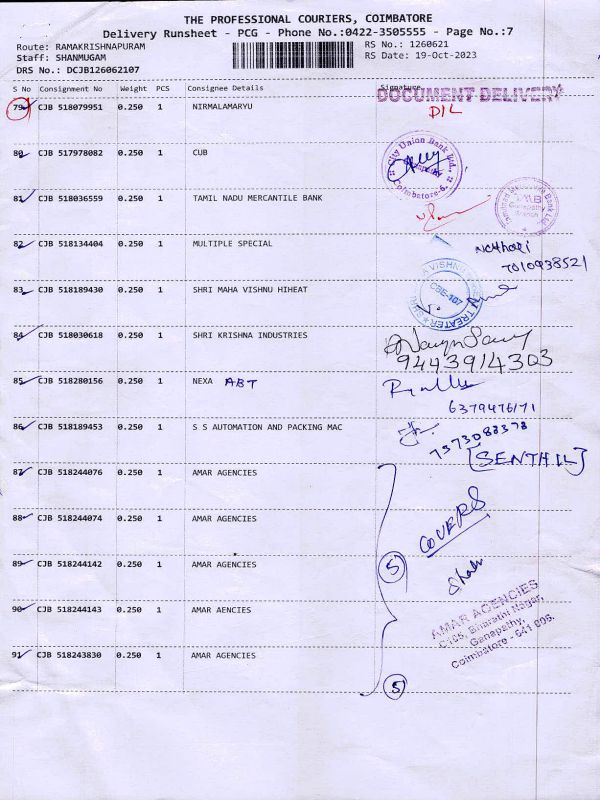 THE PROFESSIONAL COURIERS, COIMBATORE
Delivery Runsheet - PCG - Phone No.:0422-3505555 - Page No.:7
Route: RAMAKRISHNAPURAM
RS No.: 1260621
Staff: SHANMUGAM
RS Date: 19-Oct-2023
DRS No.: DCJB126062107
S No Consignment No Weight PCS Consignee Details Signature
DOCUMENT DELIVERY
79 CJB 518079951 0.250 1 NIRMALAMARYU
DIL
80 CJB 517978082 0.250 1 CUB
City Union Bank Ltd.,
Coimbatore-6.
81 CJB 518036559 0.250 1 TAMIL NADU MERCANTILE BANK
Ganapathy
Branch
82 CJB 518134404 0.250 1 MULTIPLE SPECIAL
7010938521
83 CJB 518189430 0.250 1 SHRI MAHA VISHNU HIHEAT
VISHNU
TREATER
CBE-107
84 CJB 518030618 0.250 1 SHRI KRISHNA INDUSTRIES
9443914303
85 CJB 518280156 0.250 1 NEXA ABT
6379476171
86 CJB 518189453 0.250 1 S S AUTOMATION AND PACKING MAC
7373083378
[SENTHIL]
87 CJB 518244076 0.250 1 AMAR AGENCIES
88 CJB 518244074 0.250 1 AMAR AGENCIES
COVERS
89 CJB 518244142 0.250 1 AMAR AGENCIES
5
90 CJB 518244143 0.250 1 AMAR AENCIES
AMAR AGENCIES
C165, Bharathi Nagar,
Ganapathy,
Coimbatore - 641 006.
91 CJB 518243830 0.250 1 AMAR AGENCIES
5